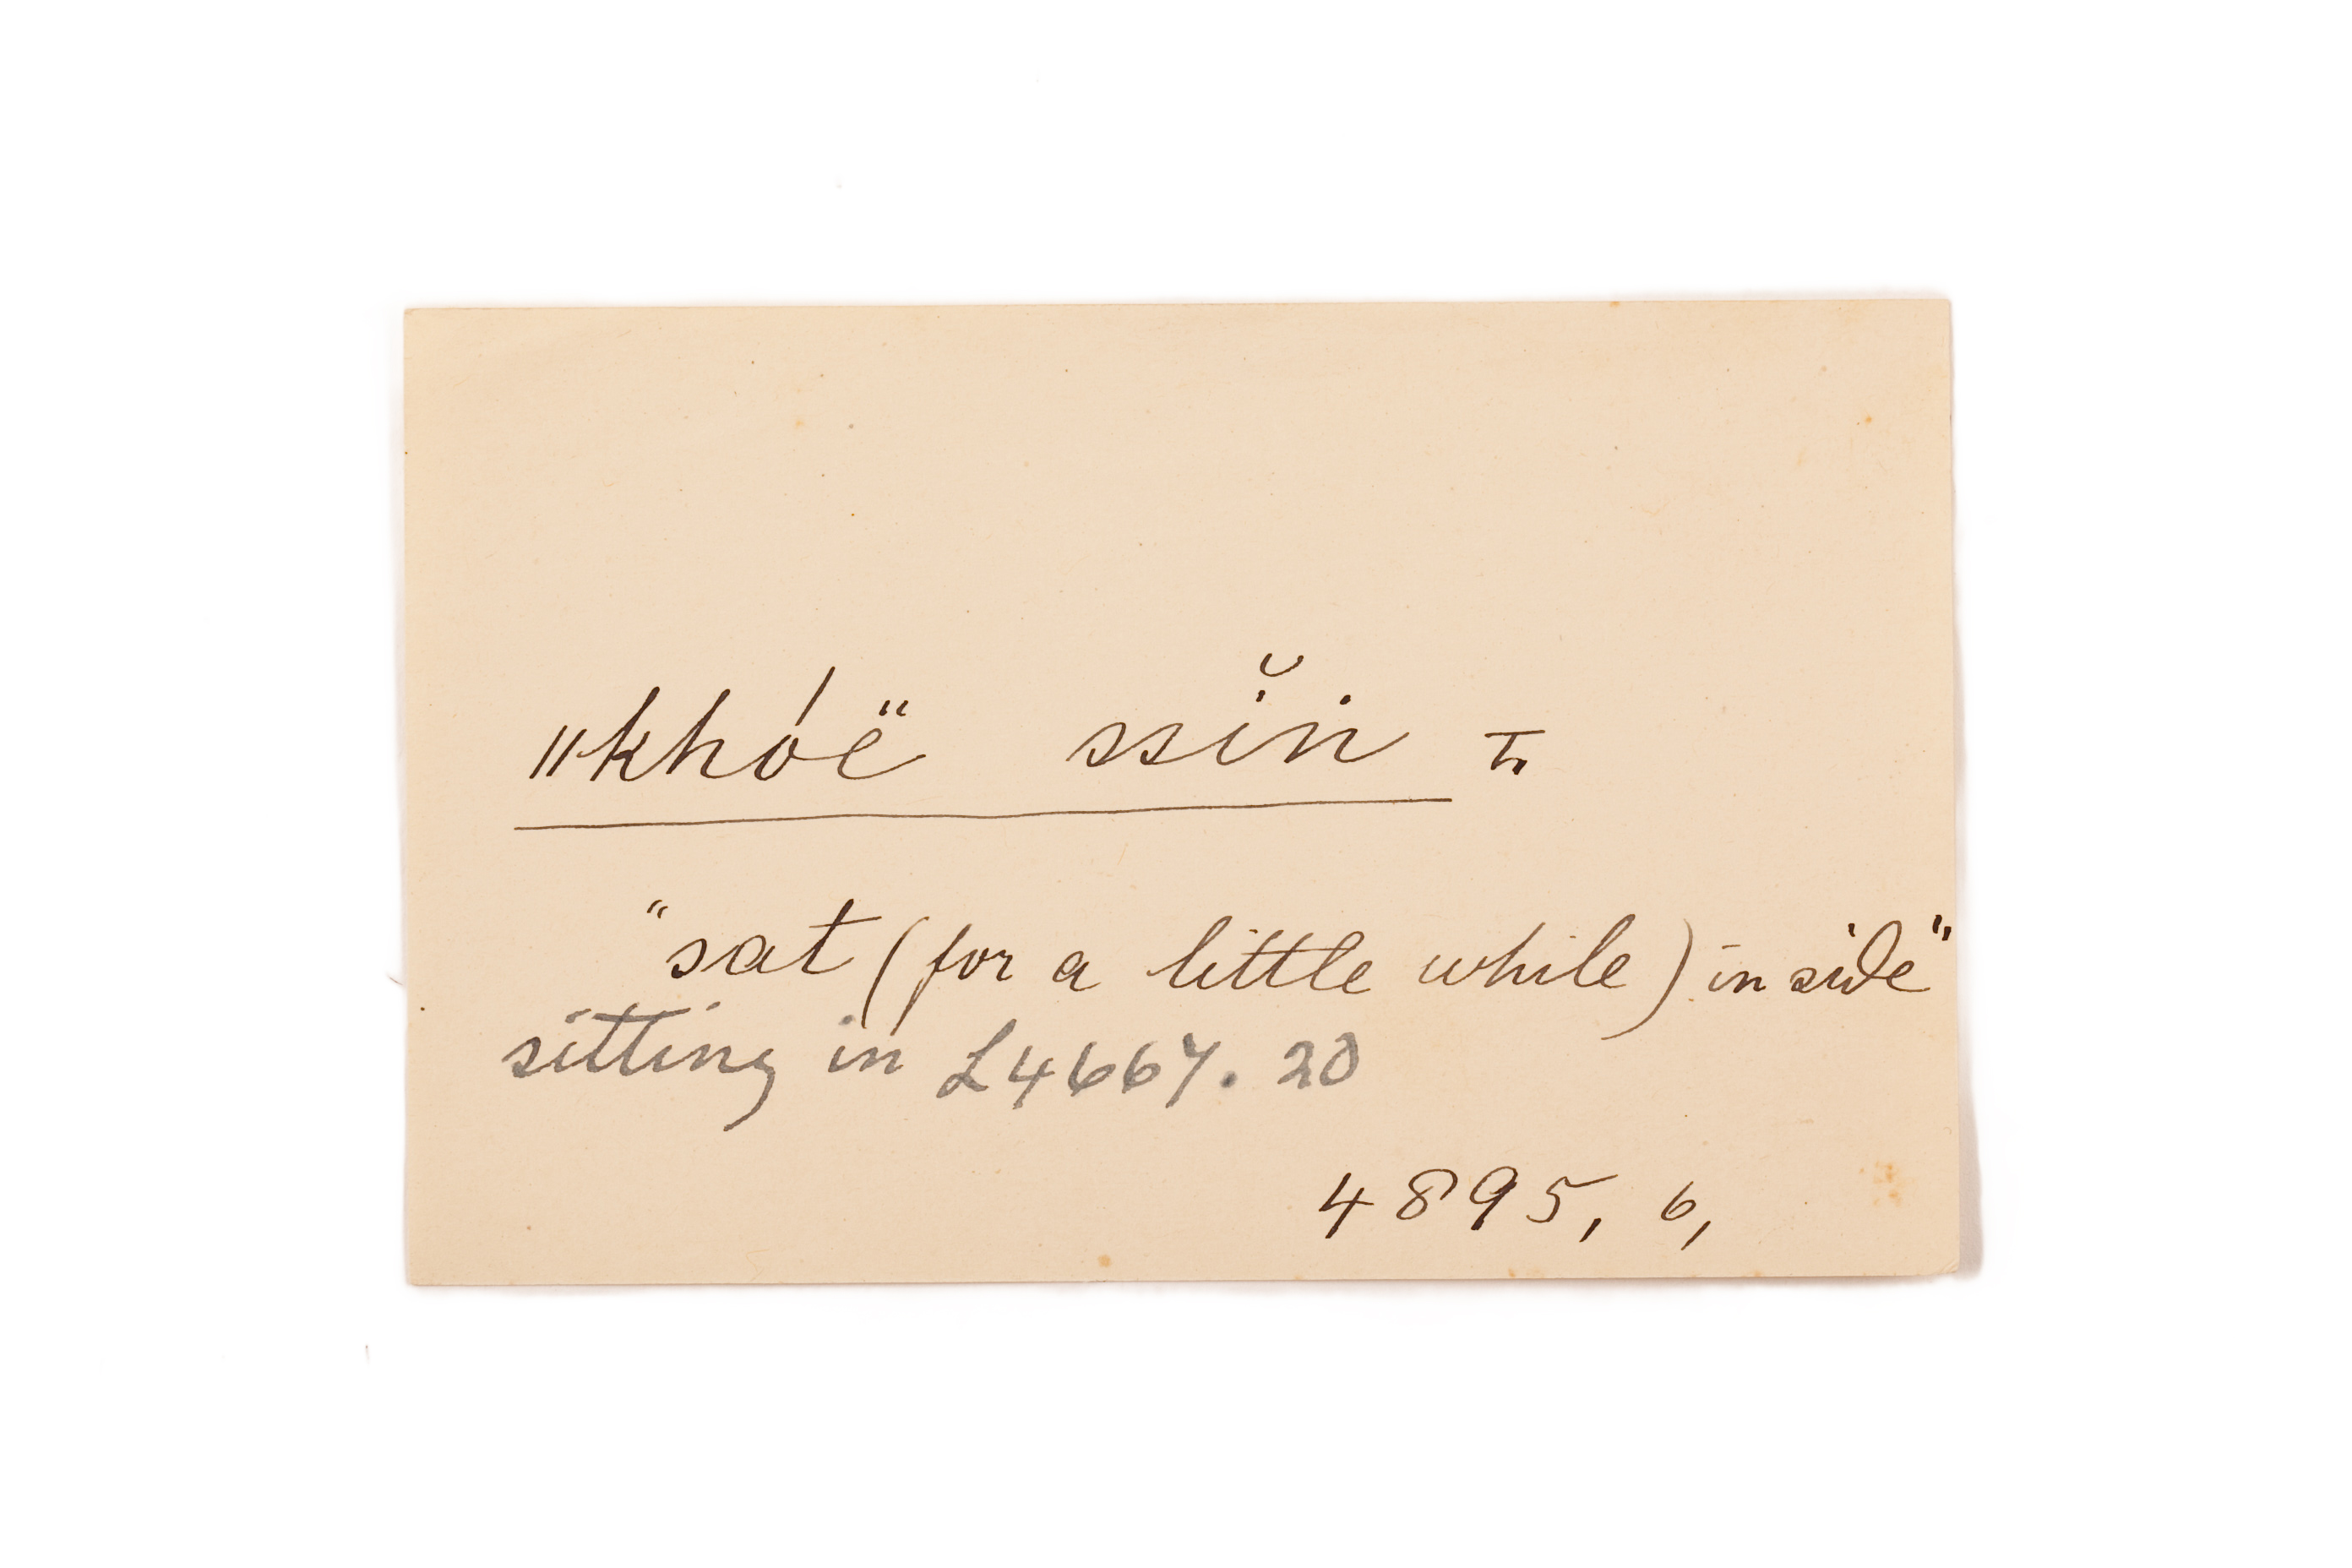 ||khóë ssĭn T.
"sat (for a little while) inside"
sitting in L4667. 20
4895, 6,